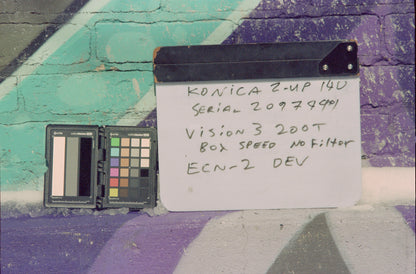 KONICA Z-UP 140
SERIAL 20979991
VISION 3 200T
BOX SPEED NO FILTER
ECN-2 DEV